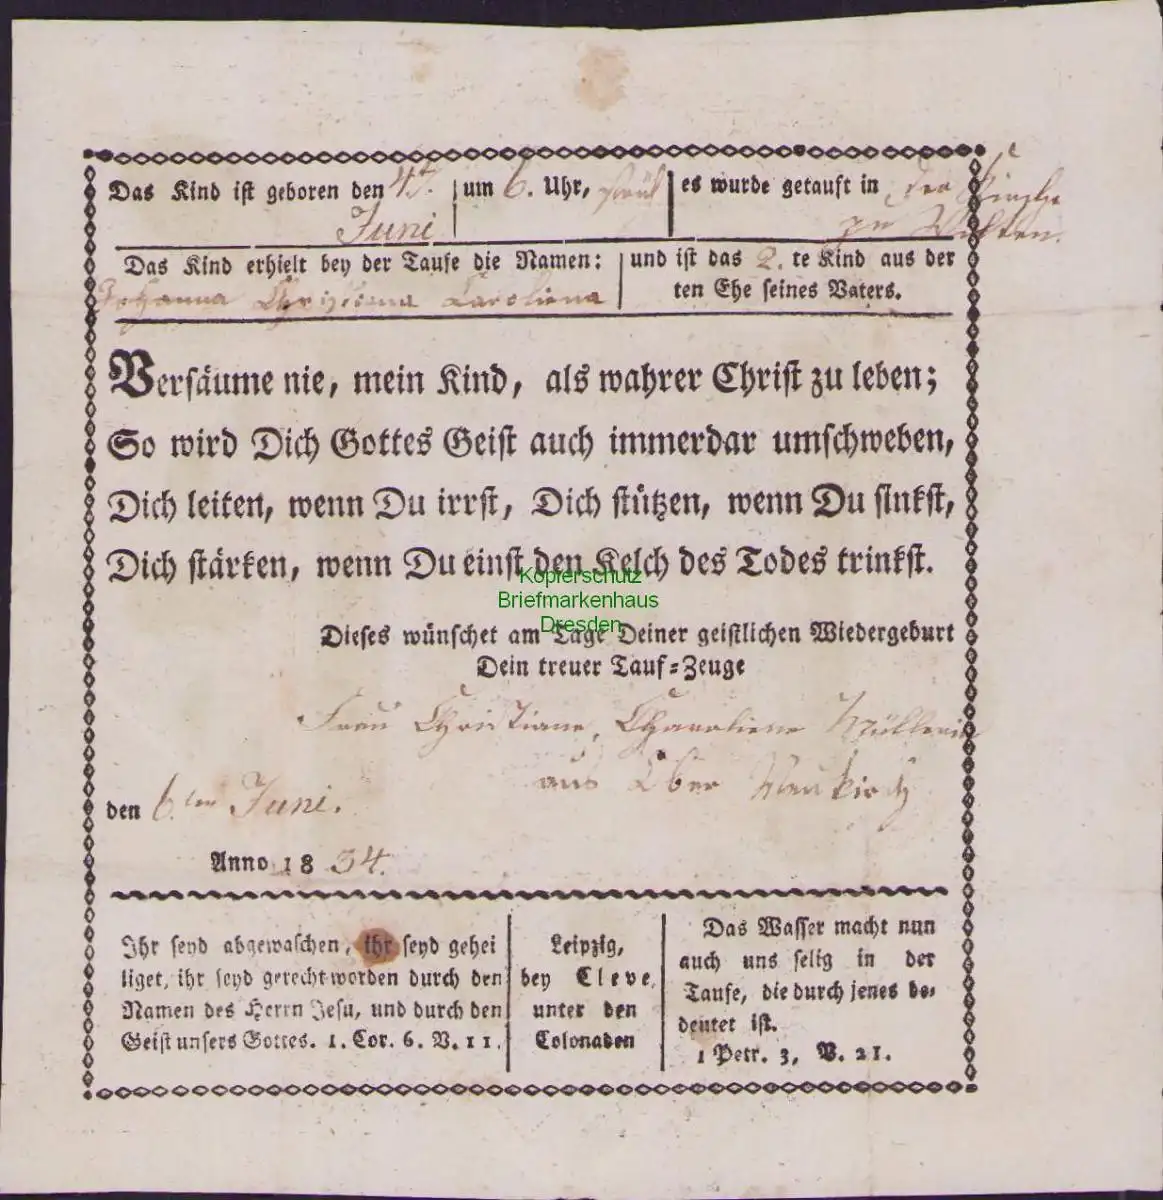 Das Kind ist geboren den 4t. Juni
um 6. Uhr, früh
es wurde getauft in der Kirche zu
Das Kind erhielt bey der Taufe die Namen:
Johanna Christiana Caroliena
und ist das 2. te Kind aus der
ten Ehe seines Vaters.
Versäume nie, mein Kind, als wahrer Christ zu leben;
So wird Dich Gottes Geist auch immerdar umschweben,
Dich leiten, wenn Du irrst, Dich stützen, wenn Du sinkst,
Dich stärken, wenn Du einst den Kelch des Todes trinkst.
Kopierschutz
Briefmarkenhaus
Dresden
Dieses wünschet am Tage Deiner geistlichen Wiedergeburt
Dein treuer Tauf-Zeuge
Frau Christiane, Charoliene Müllerin
aus Ober Neukirch
den 6.ten Juni.
Anno 1834.
Ihr seyd abgewaschen, ihr seyd gehei
liget, ihr seyd gerecht worden durch den
Namen des Herrn Jesu, und durch den
Geist unsers Gottes. 1. Cor. 6. V. 11.
Leipzig,
bey Cleve,
unter den
Colonaden
Das Wasser macht nun
auch uns selig in der
Taufe, die durch jenes be-
deutet ist.
1 Petr. 3, V. 21.